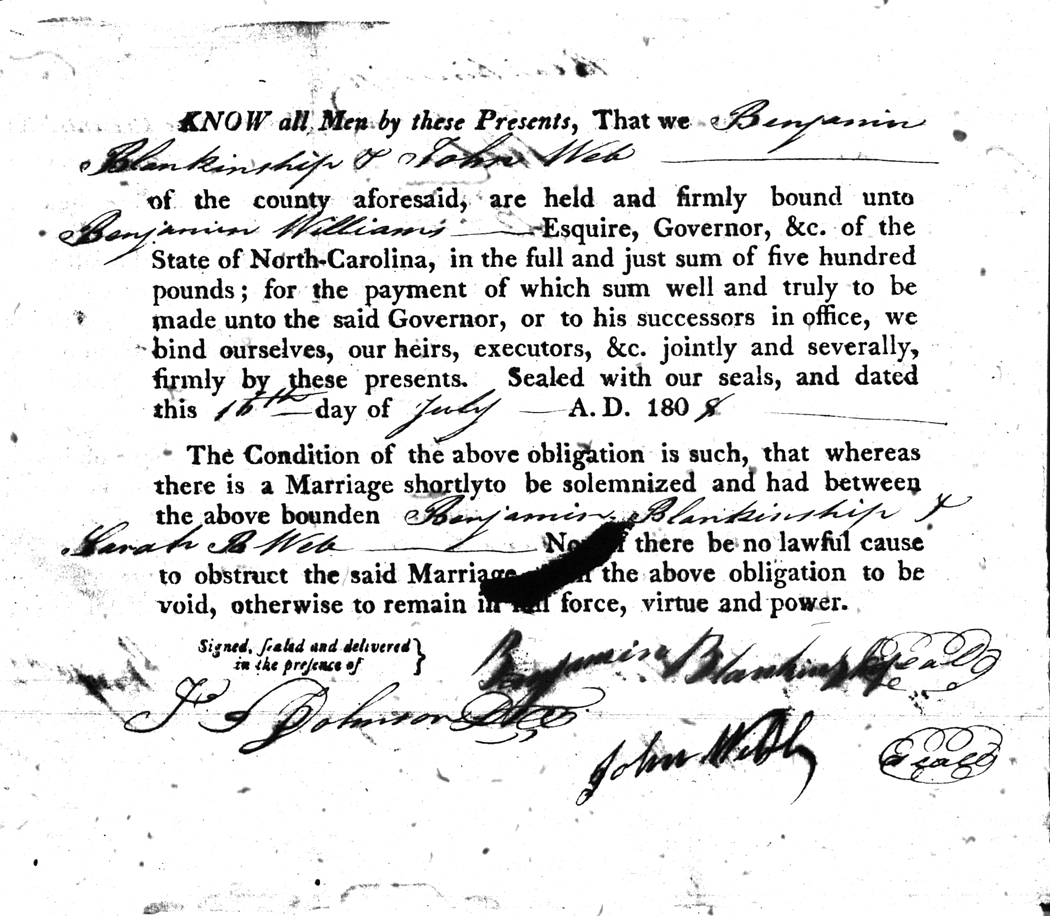 KNOW all Men by these Presents, That we Benjamin
Blankinship & John Web
of the county aforesaid, are held and firmly bound unto
Benjamin Williams Esquire, Governor, &c. of the
State of North-Carolina, in the full and just sum of five hundred
pounds; for the payment of which sum well and truly to be
made unto the said Governor, or to his successors in office, we
bind ourselves, our heirs, executors, &c. jointly and severally,
firmly by these presents. Sealed with our seals, and dated
this 16th day of July A. D. 1808
The Condition of the above obligation is such, that whereas
there is a Marriage shortlyto be solemnized and had between
the above bounden Benjamin Blankinship &
Sarah B Web if there be no lawful cause
to obstruct the said Marriage the above obligation to be
void, otherwise to remain in full force, virtue and power.
Signed, sealed and delivered
in the presence of
Benjamin Blankinship Seal
Johnson
John Webb
Seal